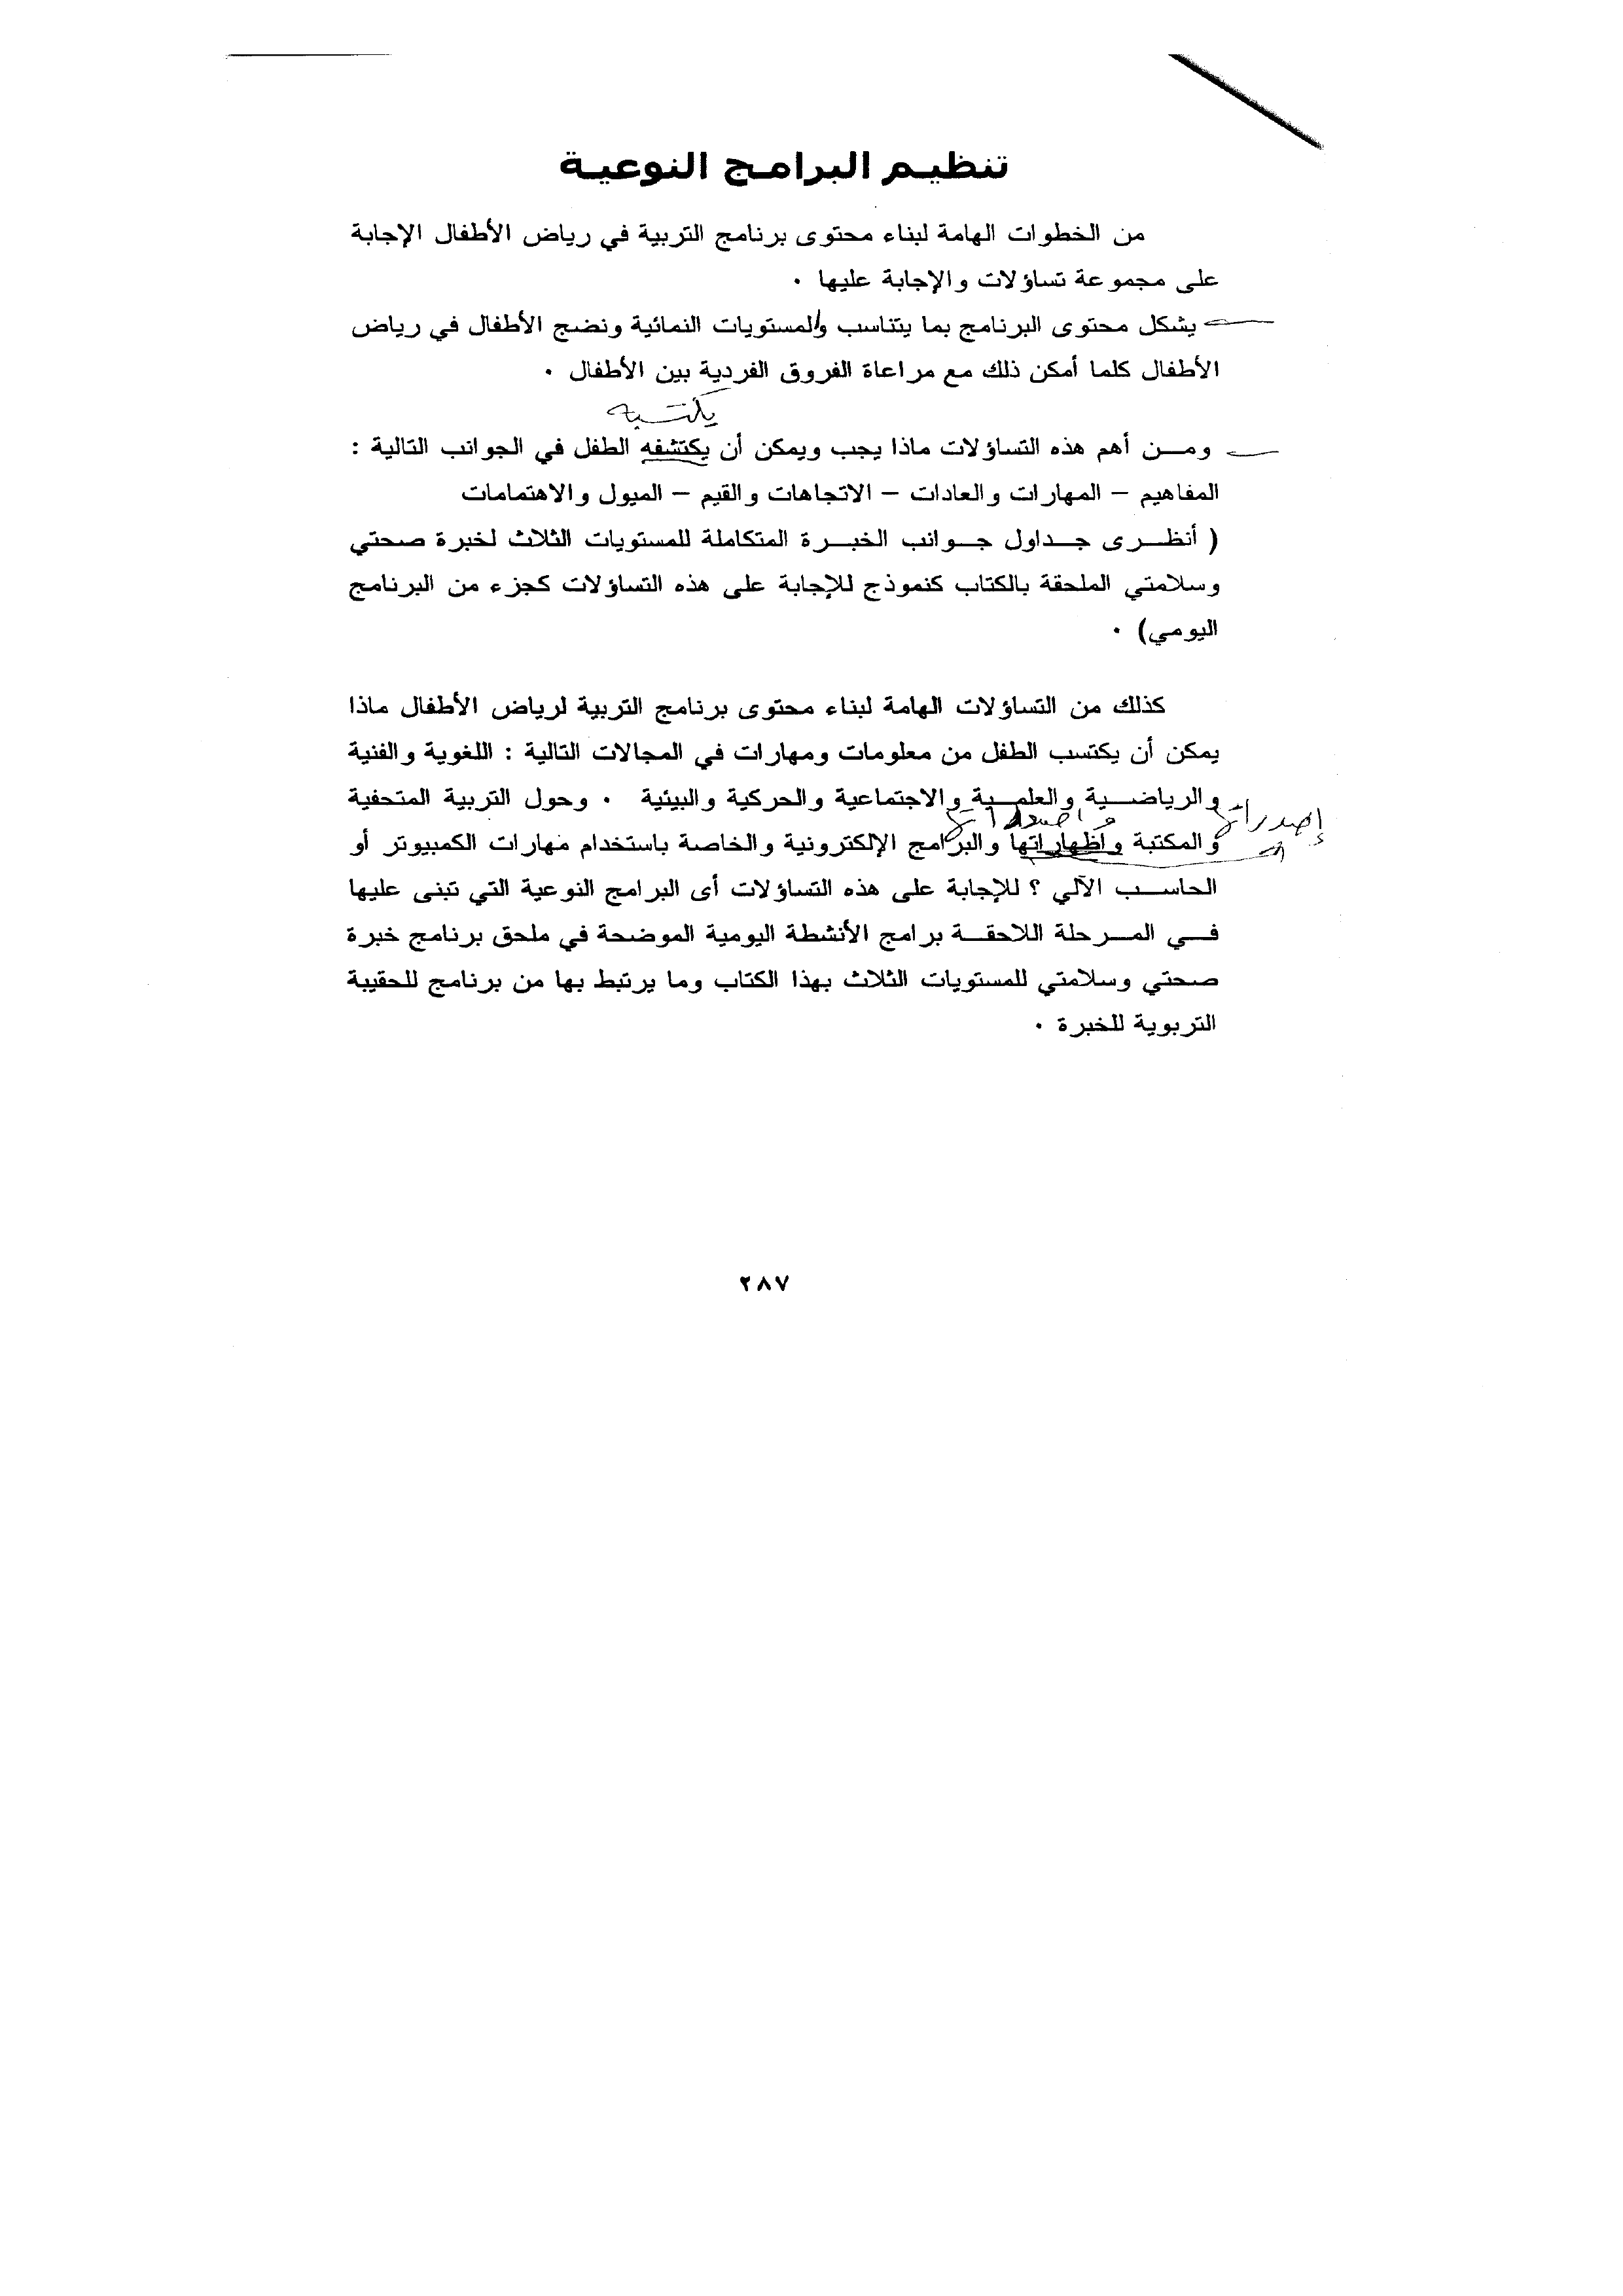 تنظيم البرامج النوعية
من الخطوات الهامة لبناء محتوى برنامج التربية في رياض الأطفال الإجابة
على مجموعة تساؤلات والإجابة عليها .
يشكل محتوى البرنامج بما يتناسب والمستويات النمائية ونضج الأطفال في رياض
الأطفال كلما أمكن ذلك مع مراعاة الفروق الفردية بين الأطفال .
ومن أهم هذه التساؤلات ماذا يجب ويمكن أن يكتشفه الطفل في الجوانب التالية :
المفاهيم – المهارات والعادات – الاتجاهات والقيم – الميول والاهتمامات
( أنظرى جداول جوانب الخبرة المتكاملة للمستويات الثلاث لخبرة صحتي
وسلامتي الملحقة بالكتاب كنموذج للإجابة على هذه التساؤلات كجزء من البرنامج
اليومي) .
كذلك من التساؤلات الهامة لبناء محتوى برنامج التربية لرياض الأطفال ماذا
يمكن أن يكتسب الطفل من معلومات ومهارات في المجالات التالية : اللغوية والفنية
والرياضية والعلمية والاجتماعية والحركية والبيئية . وحول التربية المتحفية
إصدراتها
والمكتبة وأظهاراتها والبرامج الإلكترونية والخاصة باستخدام مهارات الكمبيوتر أو
الحاسب الآلي ؟ للإجابة على هذه التساؤلات أى البرامج النوعية التي تبنى عليها
في المرحلة اللاحقة برامج الأنشطة اليومية الموضحة في ملحق برنامج خبرة
صحتي وسلامتي للمستويات الثلاث بهذا الكتاب وما يرتبط بها من برنامج للحقيبة
التربوية للخبرة .
٢٨٧